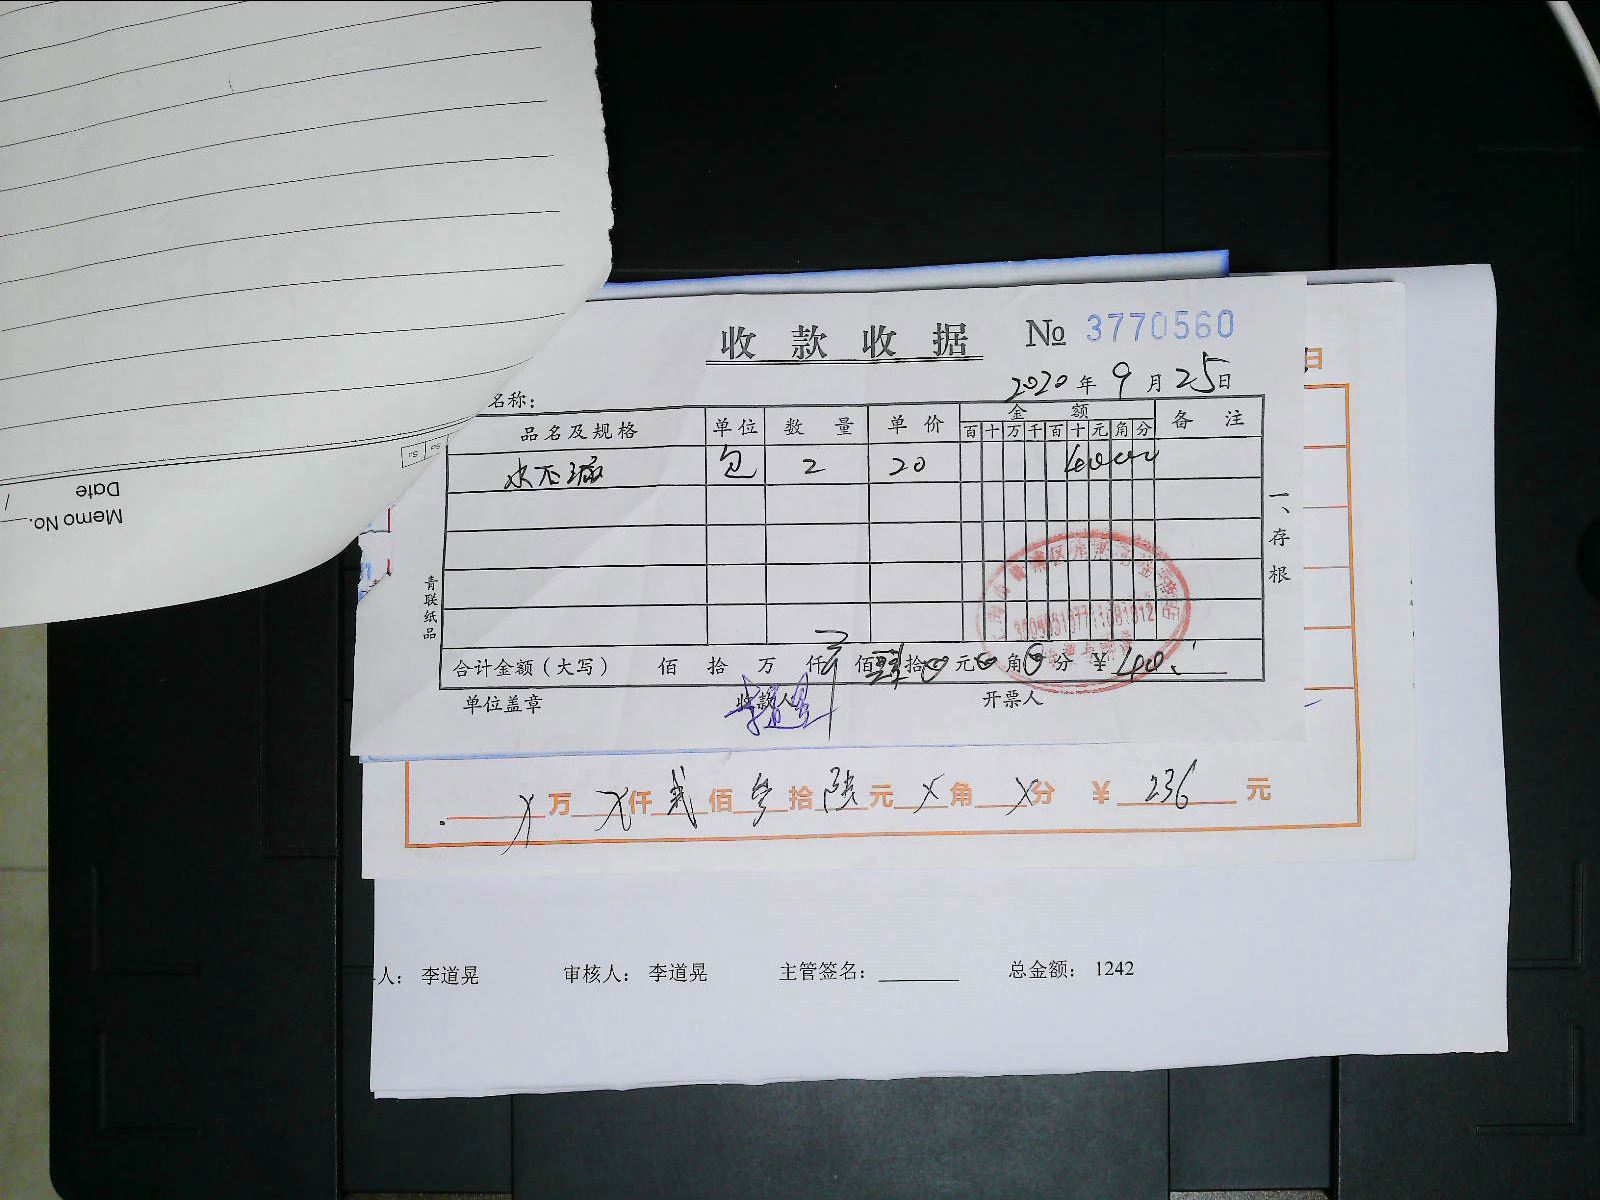 收款收据 № 3770560
2020年9月25日
名称：
品名及规格 单位 数量 单价 金额 备注
百十万千百十元角分
包 2 20 4000
一、存根
青联纸品
合计金额（大写） 佰 拾 万 仟 佰 肆拾0元0角0分 ¥40.
单位盖章 收款人 开票人
日
X万X仟贰佰叁拾陆元X角X分 ¥236元
人： 李道晃 审核人： 李道晃 主管签名：________ 总金额： 1242
Memo No.
Date